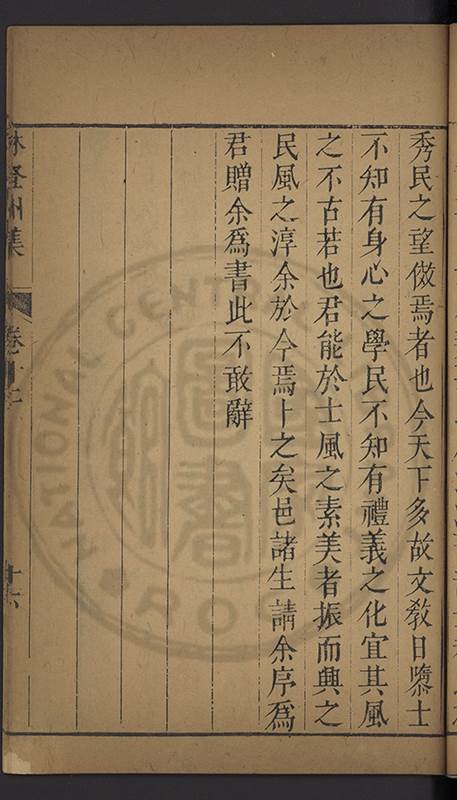 秀民之望倣焉者也今天下多故文敎日隳士
不知有身心之學民不知有禮義之化宜其風
之不古若也君能於士風之素美者振而興之
民風之淳余於今焉卜之矣邑諸生請余序爲
君贈余爲書此不敢辭
林登州集
卷十二
十六